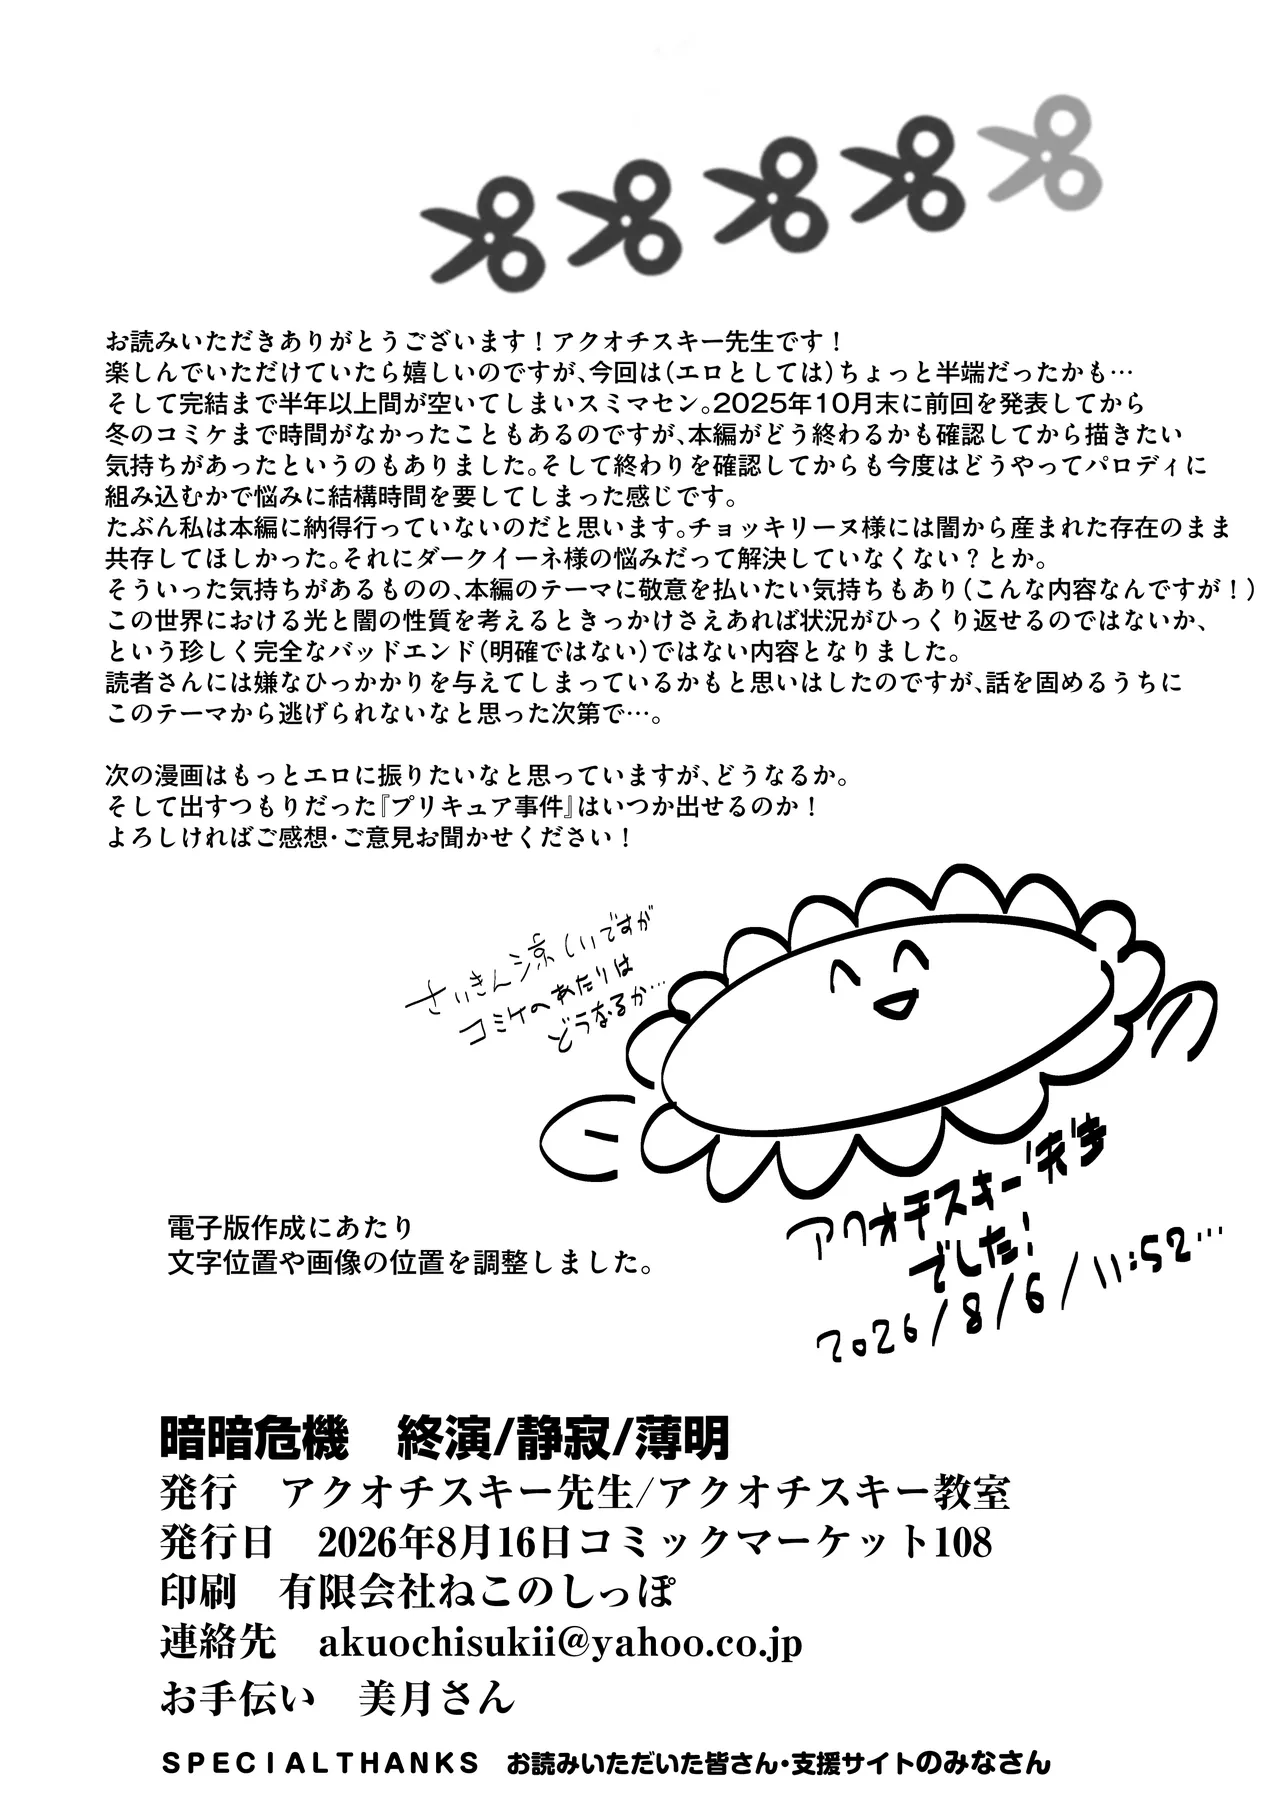 お読みいただきありがとうございます！アクオチスキー先生です！
楽しんでいただけていたら嬉しいのですが、今回は（エロとしては）ちょっと半端だったかも…
そして完結まで半年以上間が空いてしまいスミマセン。2025年10月末に前回を発表してから
冬のコミケまで時間がなかったこともあるのですが、本編がどう終わるかも確認してから描きたい
気持ちがあったというのもありました。そして終わりを確認してからも今度はどうやってパロディに
組み込むかで悩みに結構時間を要してしまった感じです。
たぶん私は本編に納得行っていないのだと思います。チョッキリーヌ様には闇から産まれた存在のまま
共存してほしかった。それにダークイーネ様の悩みだって解決していなくない？とか。
そういった気持ちがあるものの、本編のテーマに敬意を払いたい気持ちもあり（こんな内容なんですが！）
この世界における光と闇の性質を考えるときっかけさえあれば状況がひっくり返せるのではないか、
という珍しく完全なバッドエンド（明確ではない）ではない内容となりました。
読者さんには嫌なひっかかりを与えてしまっているかもと思いはしたのですが、話を固めるうちに
このテーマから逃げられないなと思った次第で…。
次の漫画はもっとエロに振りたいなと思っていますが、どうなるか。
そして出すつもりだった『プリキュア事件』はいつか出せるのか！
よろしければご感想・ご意見お聞かせください！
さいきん涼しいですが
コミケのあたりは
どうなるか…
アクオチスキー先生
でした！
2026/8/6/11:52…
電子版作成にあたり
文字位置や画像の位置を調整しました。
暗暗危機　終演/静寂/薄明
発行　アクオチスキー先生/アクオチスキー教室
発行日　2026年8月16日コミックマーケット108
印刷　有限会社ねこのしっぽ
連絡先　akuochisukii@yahoo.co.jp
お手伝い　美月さん
SPECIALTHANKS　お読みいただいた皆さん・支援サイトのみなさん